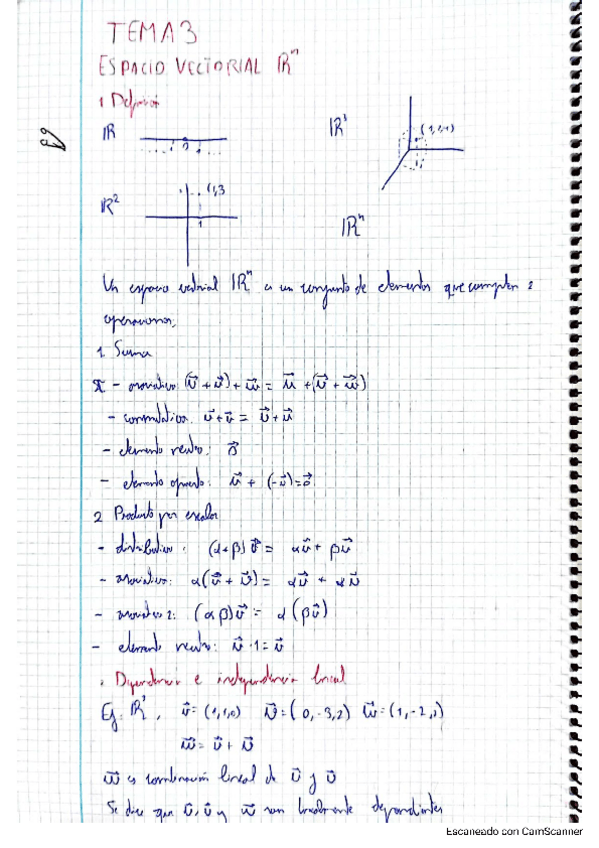 TEMA 3
ESPACIO VECTORIAL ℝⁿ
1 Definición
ℝ
0
ℝ³
(1,1,1)
ℝ²
(1,3
1
ℝⁿ
Un espacio vectorial ℝⁿ es un conjunto de elementos que cumplen 2
operaciones,
1. Suma
- asociativa (u⃗ + v⃗) + w⃗ = u⃗ + (v⃗ + w⃗)
- conmutativa. u⃗ + v⃗ = v⃗ + u⃗
- elemento neutro: 0⃗
- elemento opuesto: u⃗ + (-u⃗) = 0⃗
2 Producto por escalar
- distributiva: (α+β) u⃗ = αu⃗ + βu⃗
- asociativa: α(u⃗ + v⃗) = αu⃗ + αv⃗
- asociativa 2: (αβ)u⃗ = α(βu⃗)
- elemento neutro: u⃗ · 1 = u⃗
. Dependencia e independencia lineal
Ej: ℝ³, u⃗ = (1,1,0) v⃗ = (0,-3,2) w⃗ = (1,-2,2)
w⃗ = u⃗ + v⃗
w⃗ es combinación lineal de u⃗ y v⃗
Se dice que u⃗, v⃗ y w⃗ son linealmente dependientes
Escaneado con CamScanner